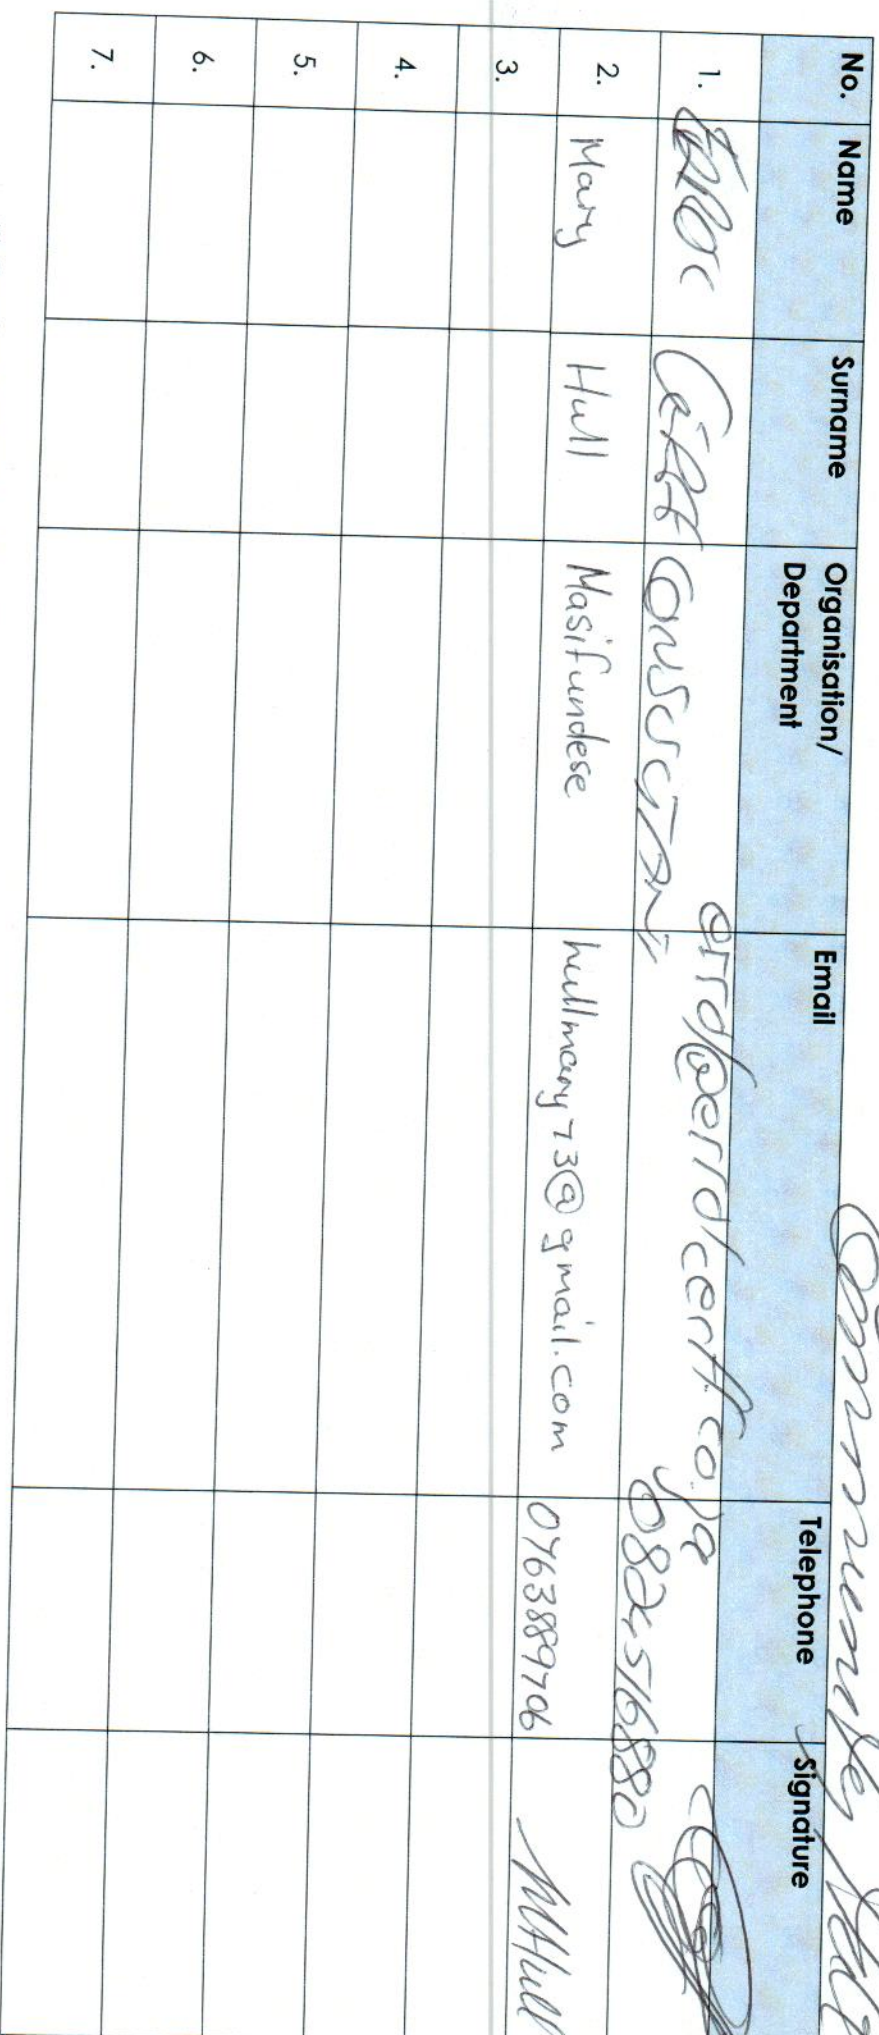 Community Hall
No. Name Surname Organisation/ Department Email Telephone Signature
1. Errol Cerff Consultant errol@errolcerff.co.za 0824516880
2. Mary Hull Masifundese hullmary73@gmail.com 0763889706 MHull
3.
4.
5.
6.
7.